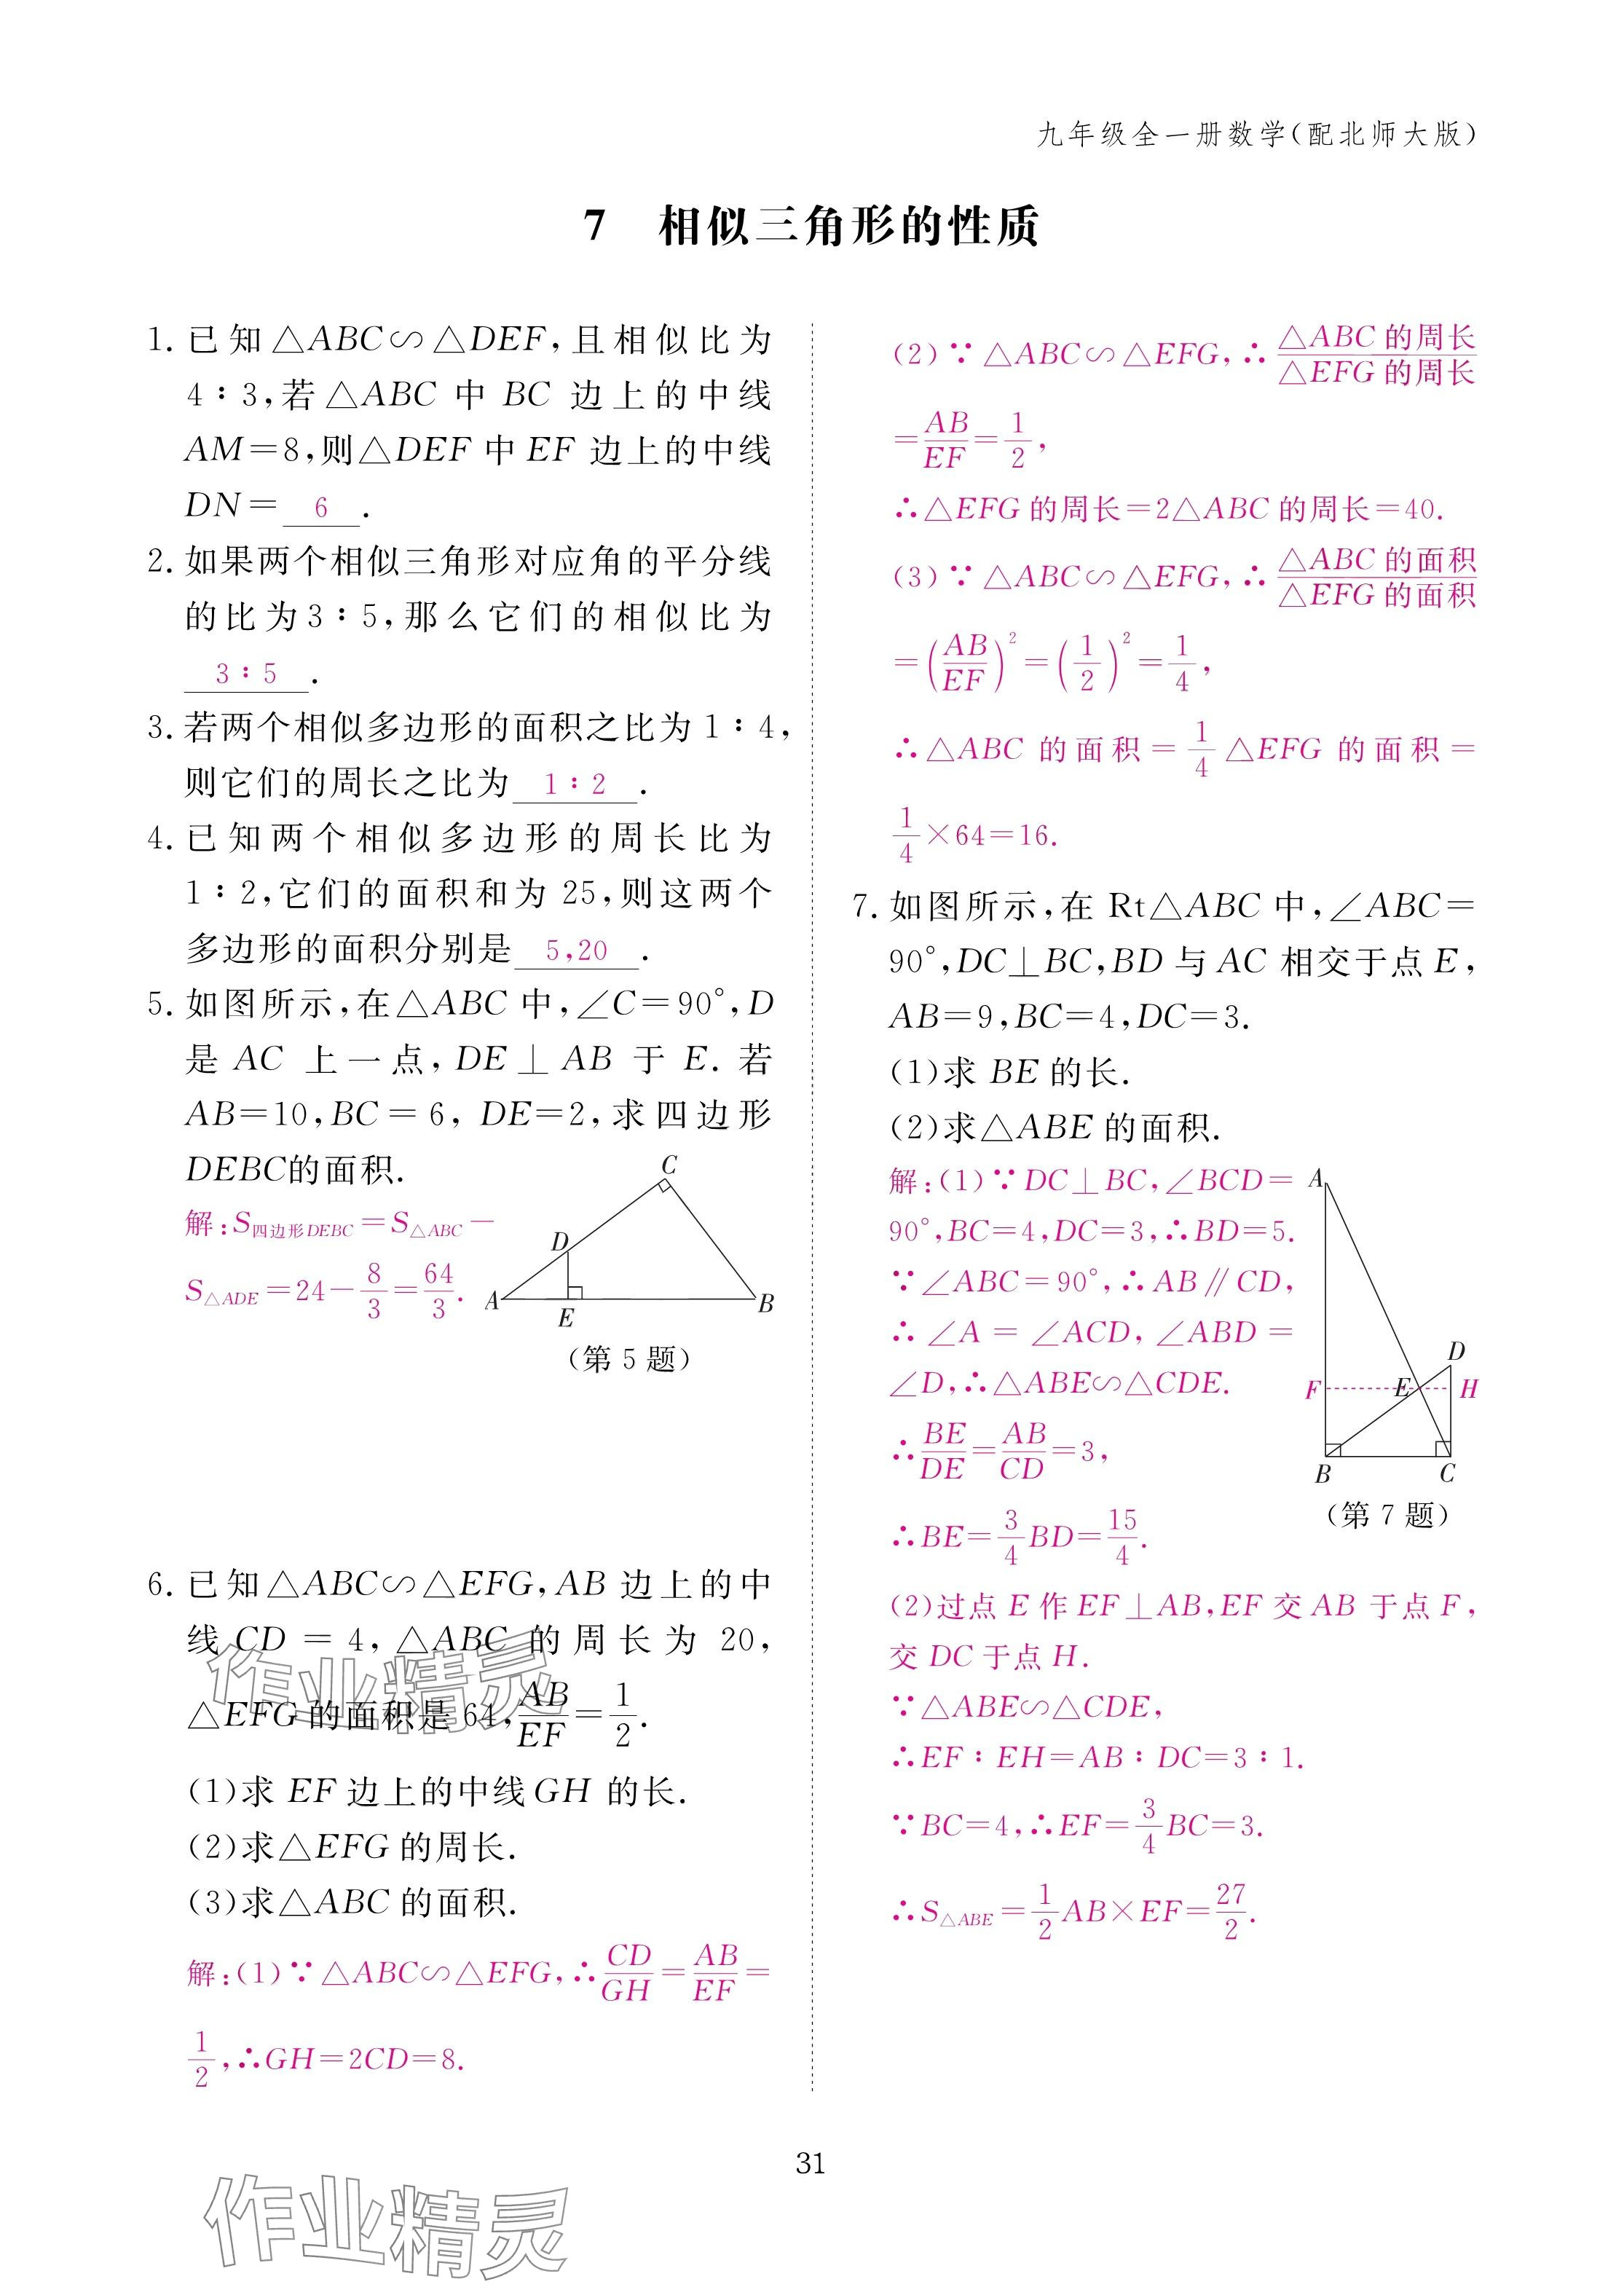 九年级全一册数学(配北师大版)
7 相似三角形的性质
1. 已知△ABC∽△DEF,且相似比为
4∶3,若△ABC 中 BC 边上的中线
AM=8,则△DEF 中 EF 边上的中线
DN= 6 .
2. 如果两个相似三角形对应角的平分线
的比为3∶5,那么它们的相似比为
3∶5 .
3. 若两个相似多边形的面积之比为1∶4,
则它们的周长之比为 1∶2 .
4. 已知两个相似多边形的周长比为
1∶2,它们的面积和为 25,则这两个
多边形的面积分别是 5,20 .
5. 如图所示,在△ABC 中,∠C=90°,D
是 AC 上一点,DE⊥AB 于 E. 若
AB=10,BC=6,DE=2,求四边形
DEBC的面积.
解:S四边形DEBC=S△ABC-
S△ADE=24-8/3=64/3.
C
D
A
E
B
(第 5 题)
6. 已知△ABC∽△EFG,AB 边上的中
线 CD=4,△ABC 的周长为 20,
△EFG 的面积是 64,AB/EF=1/2.
(1)求 EF 边上的中线GH 的长.
(2)求△EFG 的周长.
(3)求△ABC 的面积.
解:(1)∵△ABC∽△EFG,∴CD/GH=AB/EF=
1/2,∴GH=2CD=8.
(2)∵△ABC∽△EFG,∴△ABC 的周长/△EFG 的周长
=AB/EF=1/2,
∴△EFG 的周长=2△ABC 的周长=40.
(3)∵△ABC∽△EFG,∴△ABC 的面积/△EFG 的面积
=(AB/EF)²=(1/2)²=1/4,
∴△ABC 的面积=1/4△EFG 的面积=
1/4×64=16.
7. 如图所示,在 Rt△ABC 中,∠ABC=
90°,DC⊥BC,BD 与 AC 相交于点 E,
AB=9,BC=4,DC=3.
(1)求 BE 的长.
(2)求△ABE 的面积.
解:(1)∵DC⊥BC,∠BCD=
90°,BC=4,DC=3,∴BD=5.
∵∠ABC=90°,∴AB∥CD,
∴∠A=∠ACD,∠ABD=
∠D,∴△ABE∽△CDE.
∴BE/DE=AB/CD=3,
∴BE=3/4BD=15/4.
A
D
F
E
H
B
C
(第 7 题)
(2)过点 E 作 EF⊥AB,EF 交 AB 于点 F,
交 DC 于点 H.
∵△ABE∽△CDE,
∴EF∶EH=AB∶DC=3∶1.
∵BC=4,∴EF=3/4BC=3.
∴S△ABE=1/2AB×EF=27/2.
作业精灵
31
作业精灵